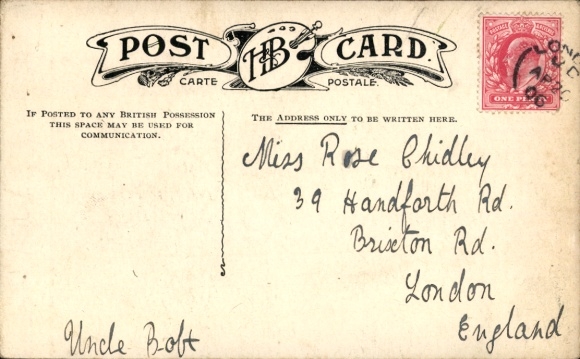 POST HB CARD.
CARTE POSTALE.
IF POSTED TO ANY BRITISH POSSESSION
THIS SPACE MAY BE USED FOR
COMMUNICATION.
THE ADDRESS ONLY TO BE WRITTEN HERE.
ONE PENNY
Miss Rose Chidley
39 Handforth Rd.
Brixton Rd.
London
England
Uncle Bobt